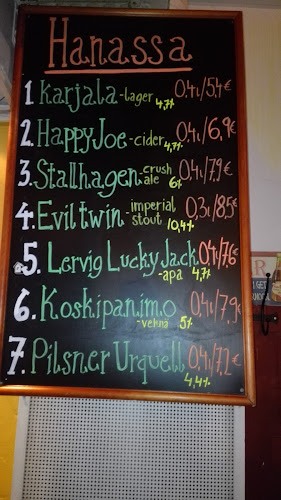 Hanassa
1 Karjala -lager 4,7% 0,4l/5,4€
2. HappyJoe -cider 4,7% 0,4l/6,9€
3. Stallhagen crush ale 6% 0,4l/7,9€
4. Eviltwin -imperial stout 10,4% 0,3l/8,5€
5. Lervig Lucky Jack 0,4l/7,6€
-apa 4,7%
6. Koskipanimo 0,4l/7,9€
-vehnä 5%
7. Pilsner Urquell 0,4l/7,2€
4,4%